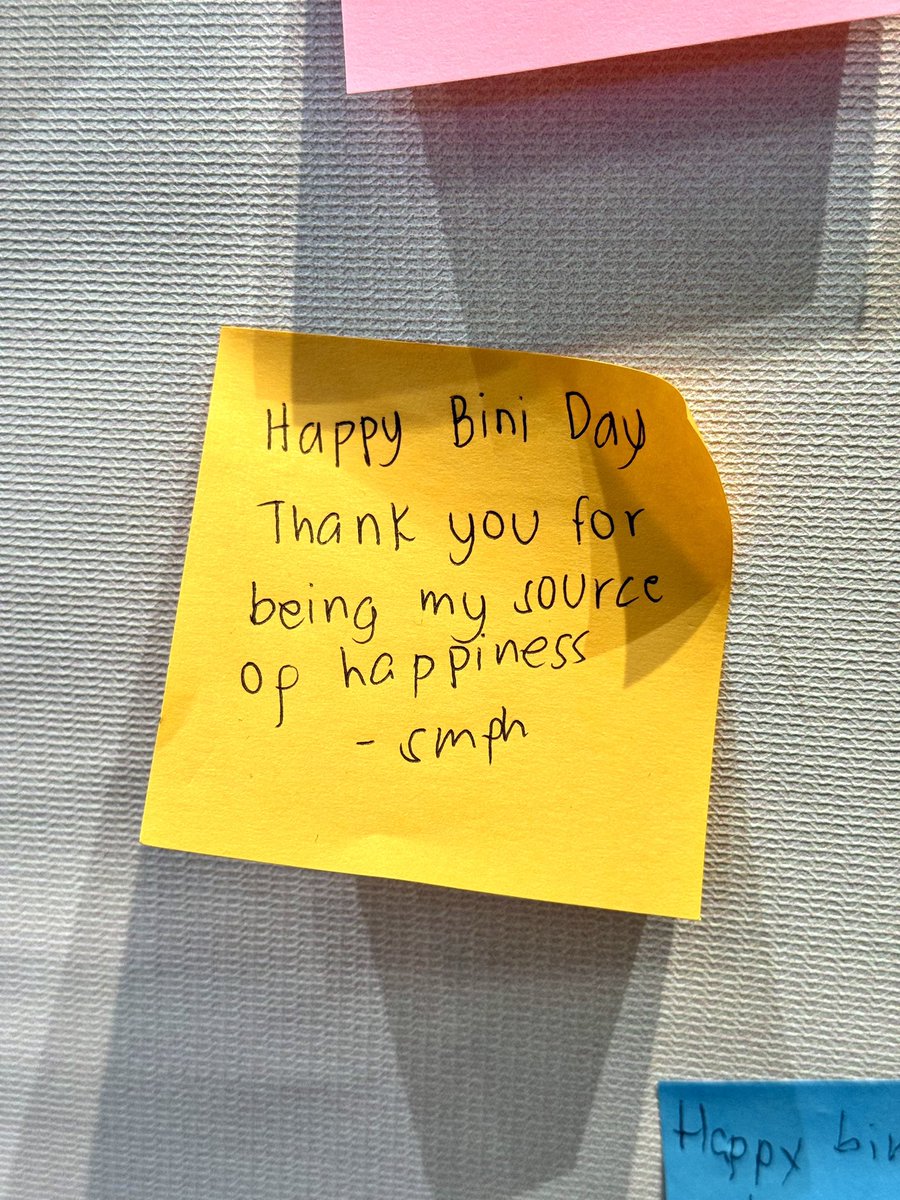 Happy Bini Day
Thank you for
being my source
op happiness
- smph
Happy